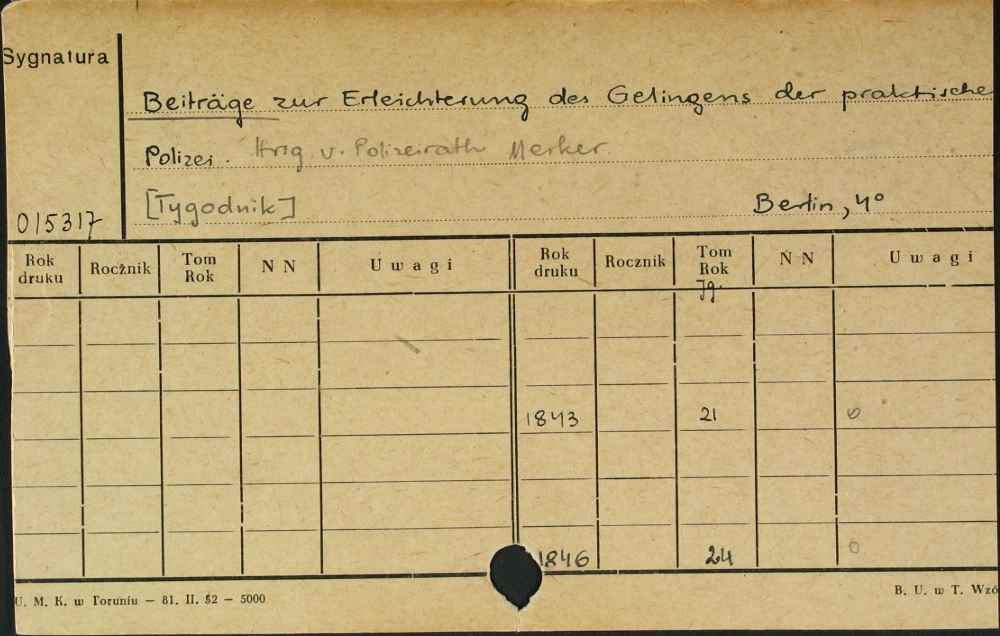 Sygnatura
Beiträge zur Erleichterung des Gelingens der praktische
Polizei. Hrsg. v. Polizeirath Merker
[Tygodnik] Berlin, 4º
015317
Rok druku Rocznik Tom Rok N N Uwagi Rok druku Rocznik Tom Rok N N Uwagi
Jg.
1843 21 0
1846 24 0
U. M. K. w Toruniu — 81. II. 52 — 5000 B. U. w T. Wzó